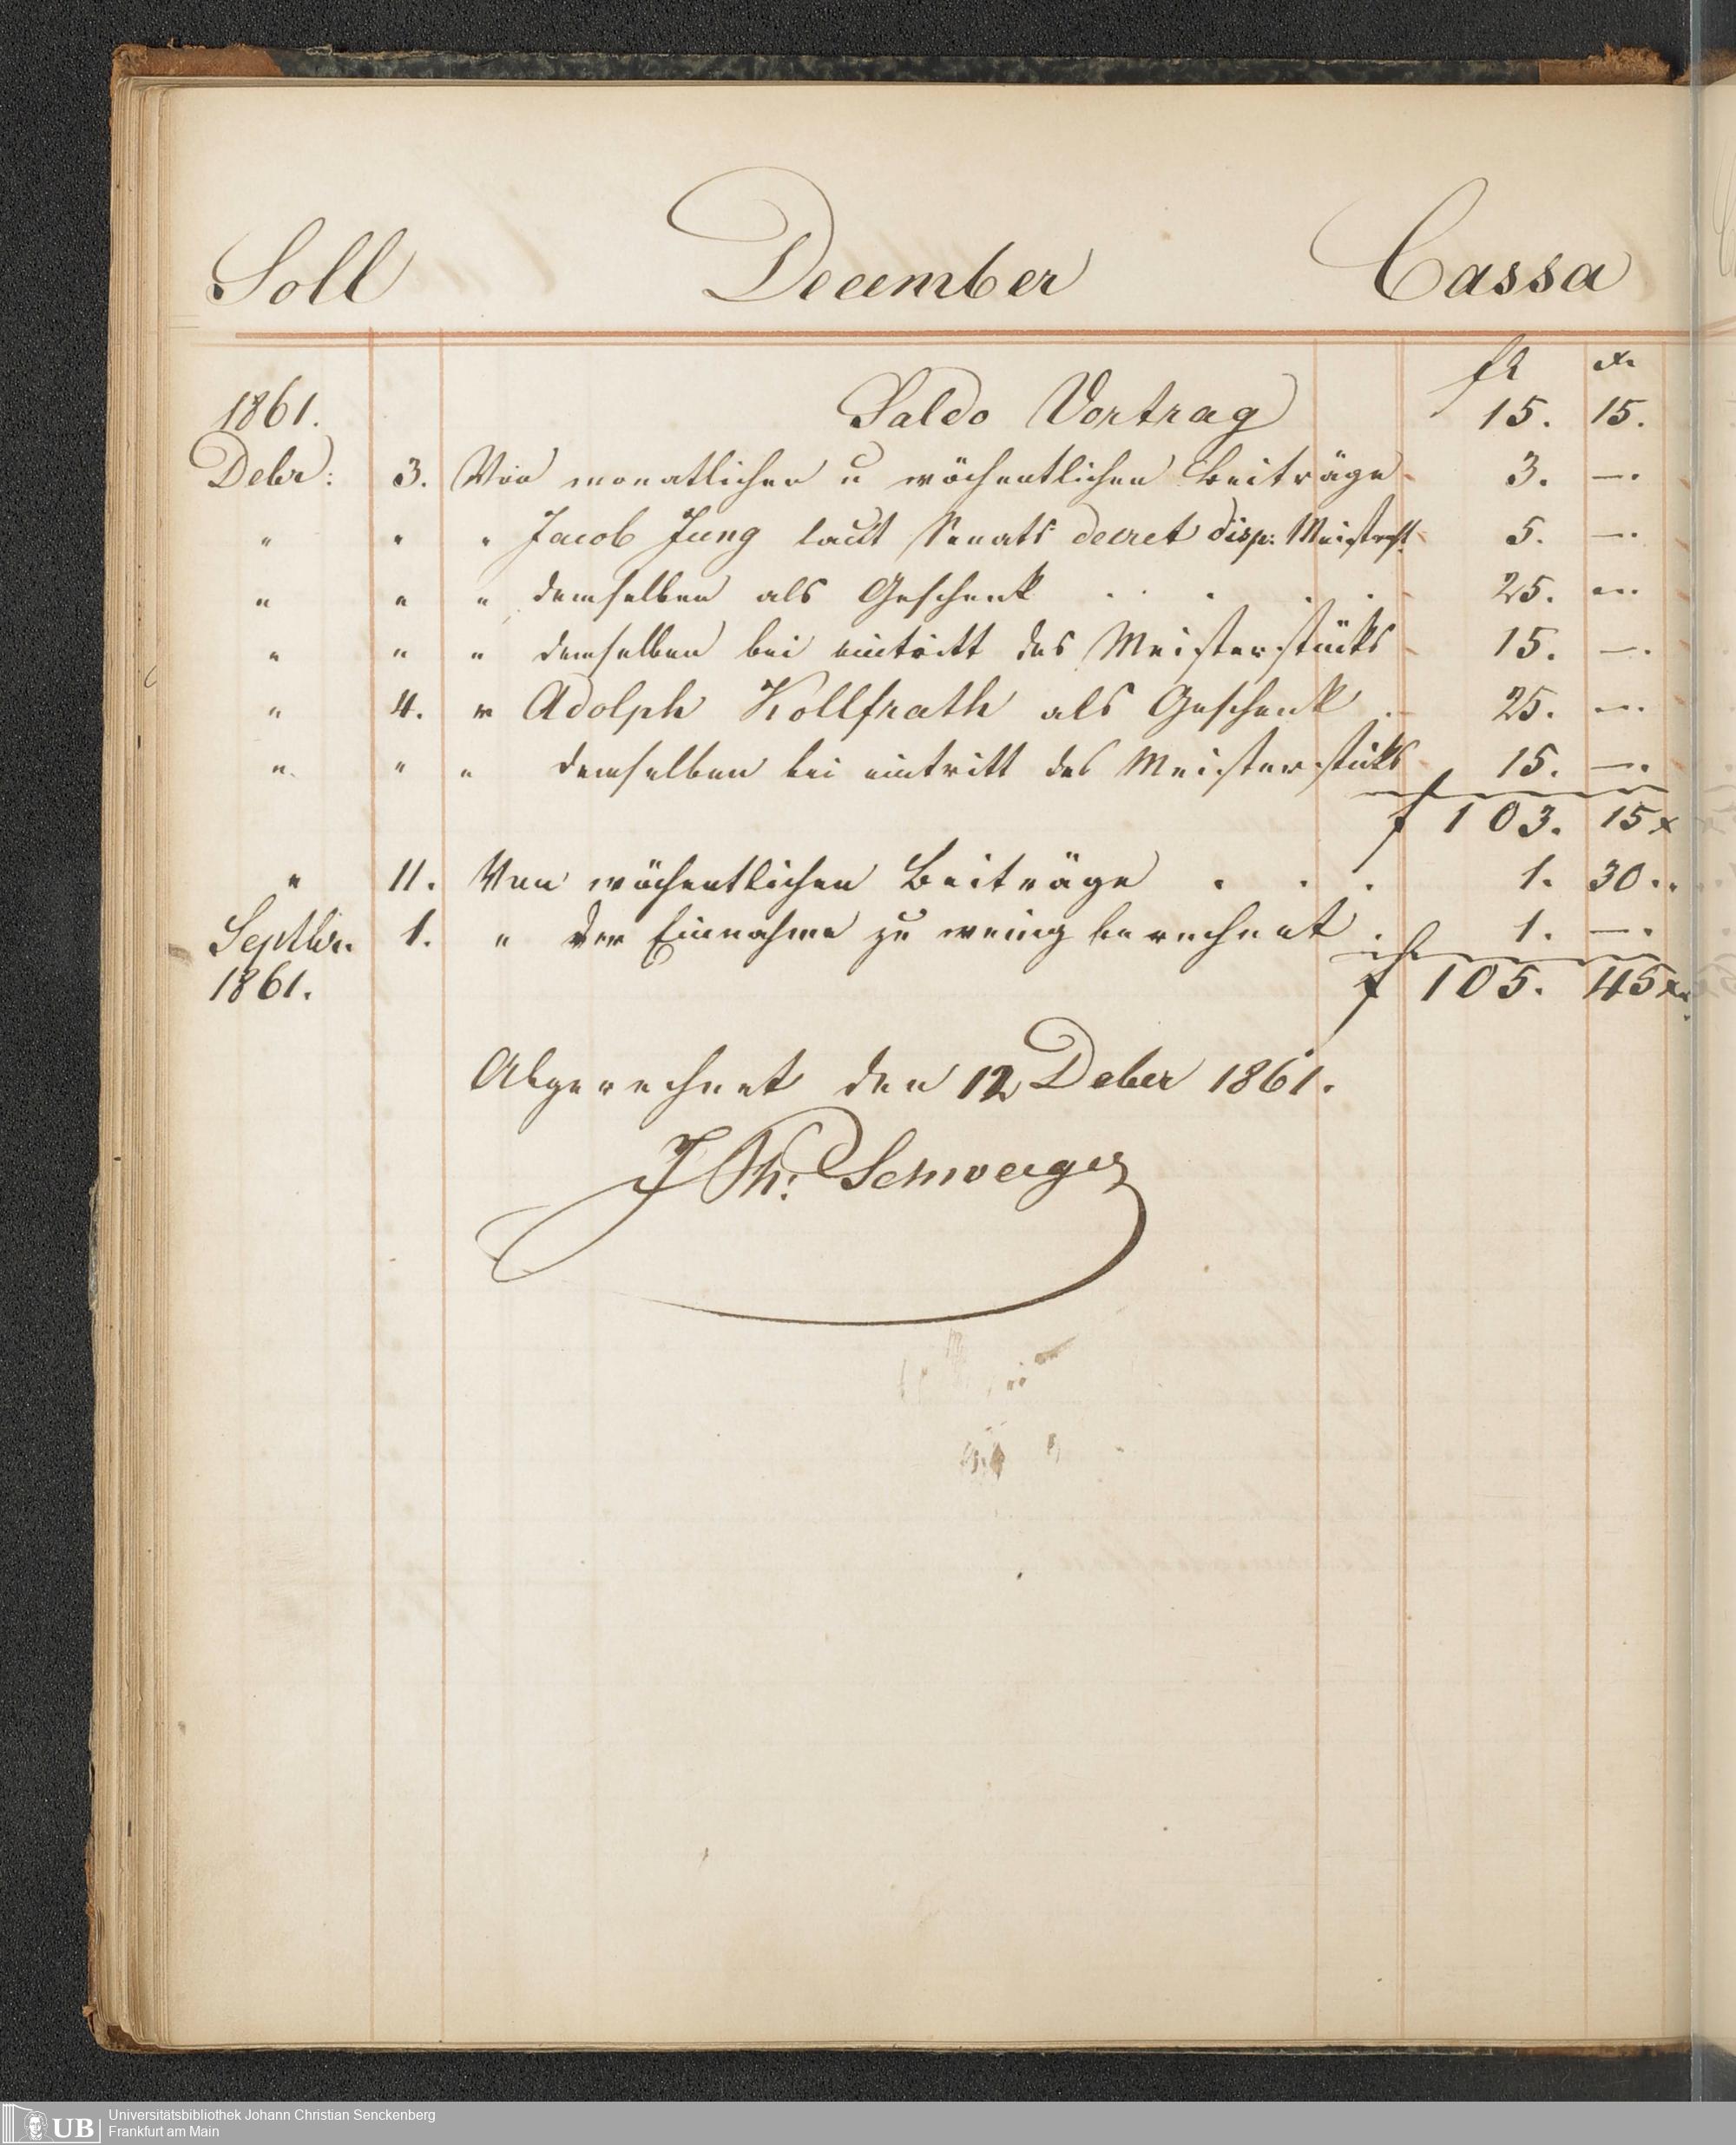 Soll December Cassa
fl xr
1861. Saldo Vortrag 15. 15.
Debr: 3. Von monatlicher u wöchentlichen Beiträge 3. —.
" " " Jacob Jung laut Senats decret disp: Meisterst. 5. —.
" " " demselben als Geschenk . . . . . 25. —.
" " " demselben bei eintritt des Meisterstücks 15. —.
" 4. " Adolph Kollfrath als Geschenk . 25. —.
" " " demselben bei eintritt des Meisterstücks 15. —.
f 103. 15 x
" 11. Von wöchentlichen Beiträge . . . 1. 30..
Septbr. 1. " der Einnahme zu wenig berechnet . 1. —.
1861. f 105. 45 xr.
Abgerechnet den 12 Deber 1861.
J Ph: Schweiger
Universitätsbibliothek Johann Christian Senckenberg
UB Frankfurt am Main